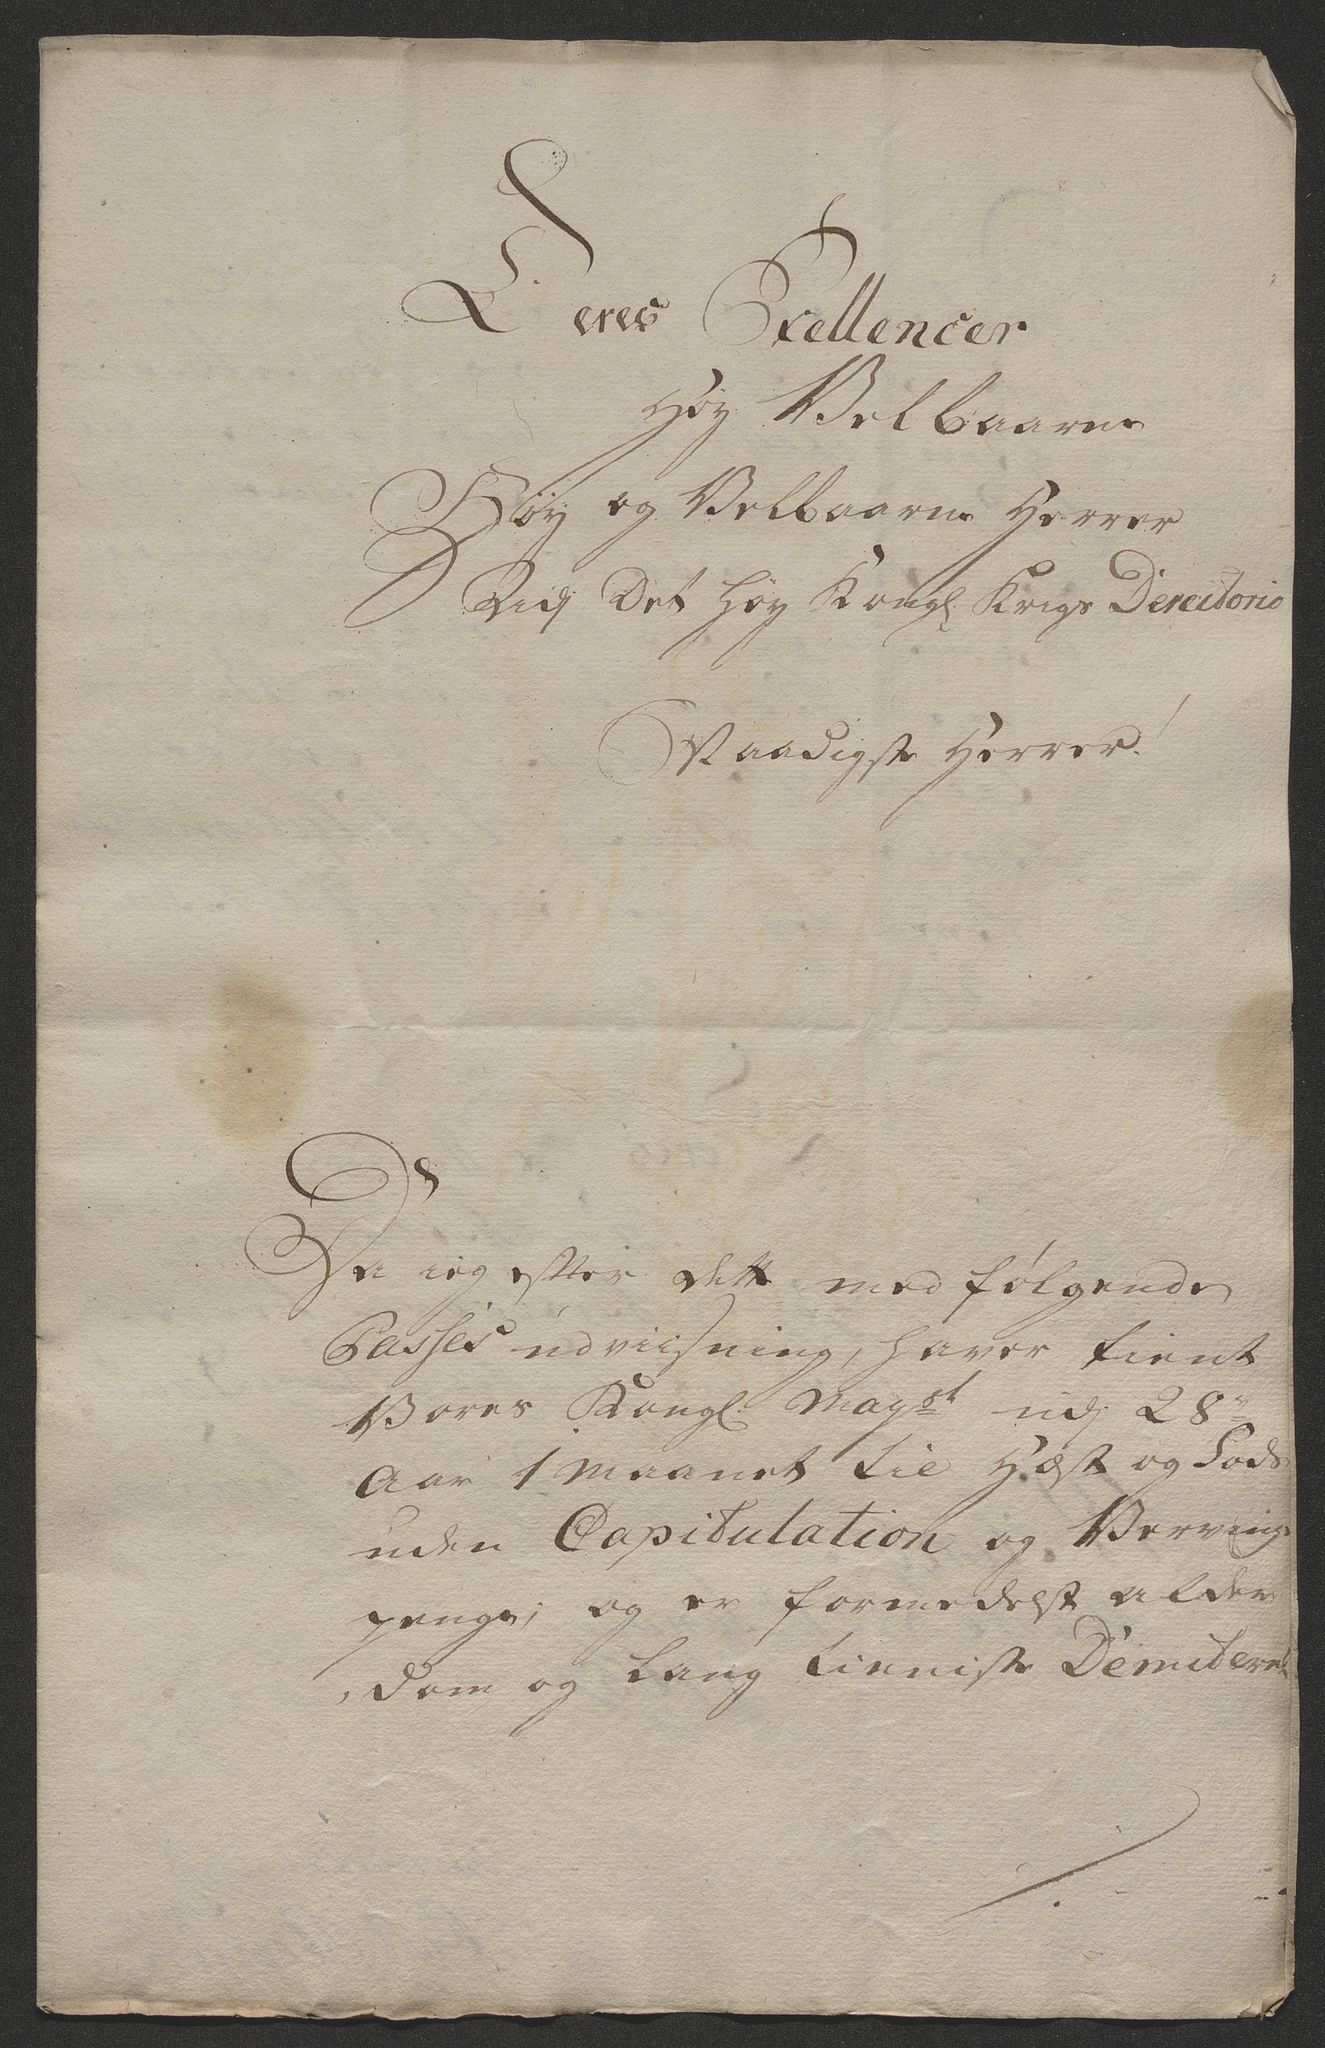 Deres Exellencer
Høy Velbaarne
Høy og Velbaarne Herrer
Vid Det Høy Kongl. Krigs Derectorio
Naadigste Herrer!
Da ieg efter dette med følgende
Passes udviisning, haver tient
Vores Kongl. Mayst. udj 28
Aar 1 Maanet til Hæst og Fods
uden Capitulation og Verving
penge; og er formedelst alder
dom og lang tienniste Demiteret